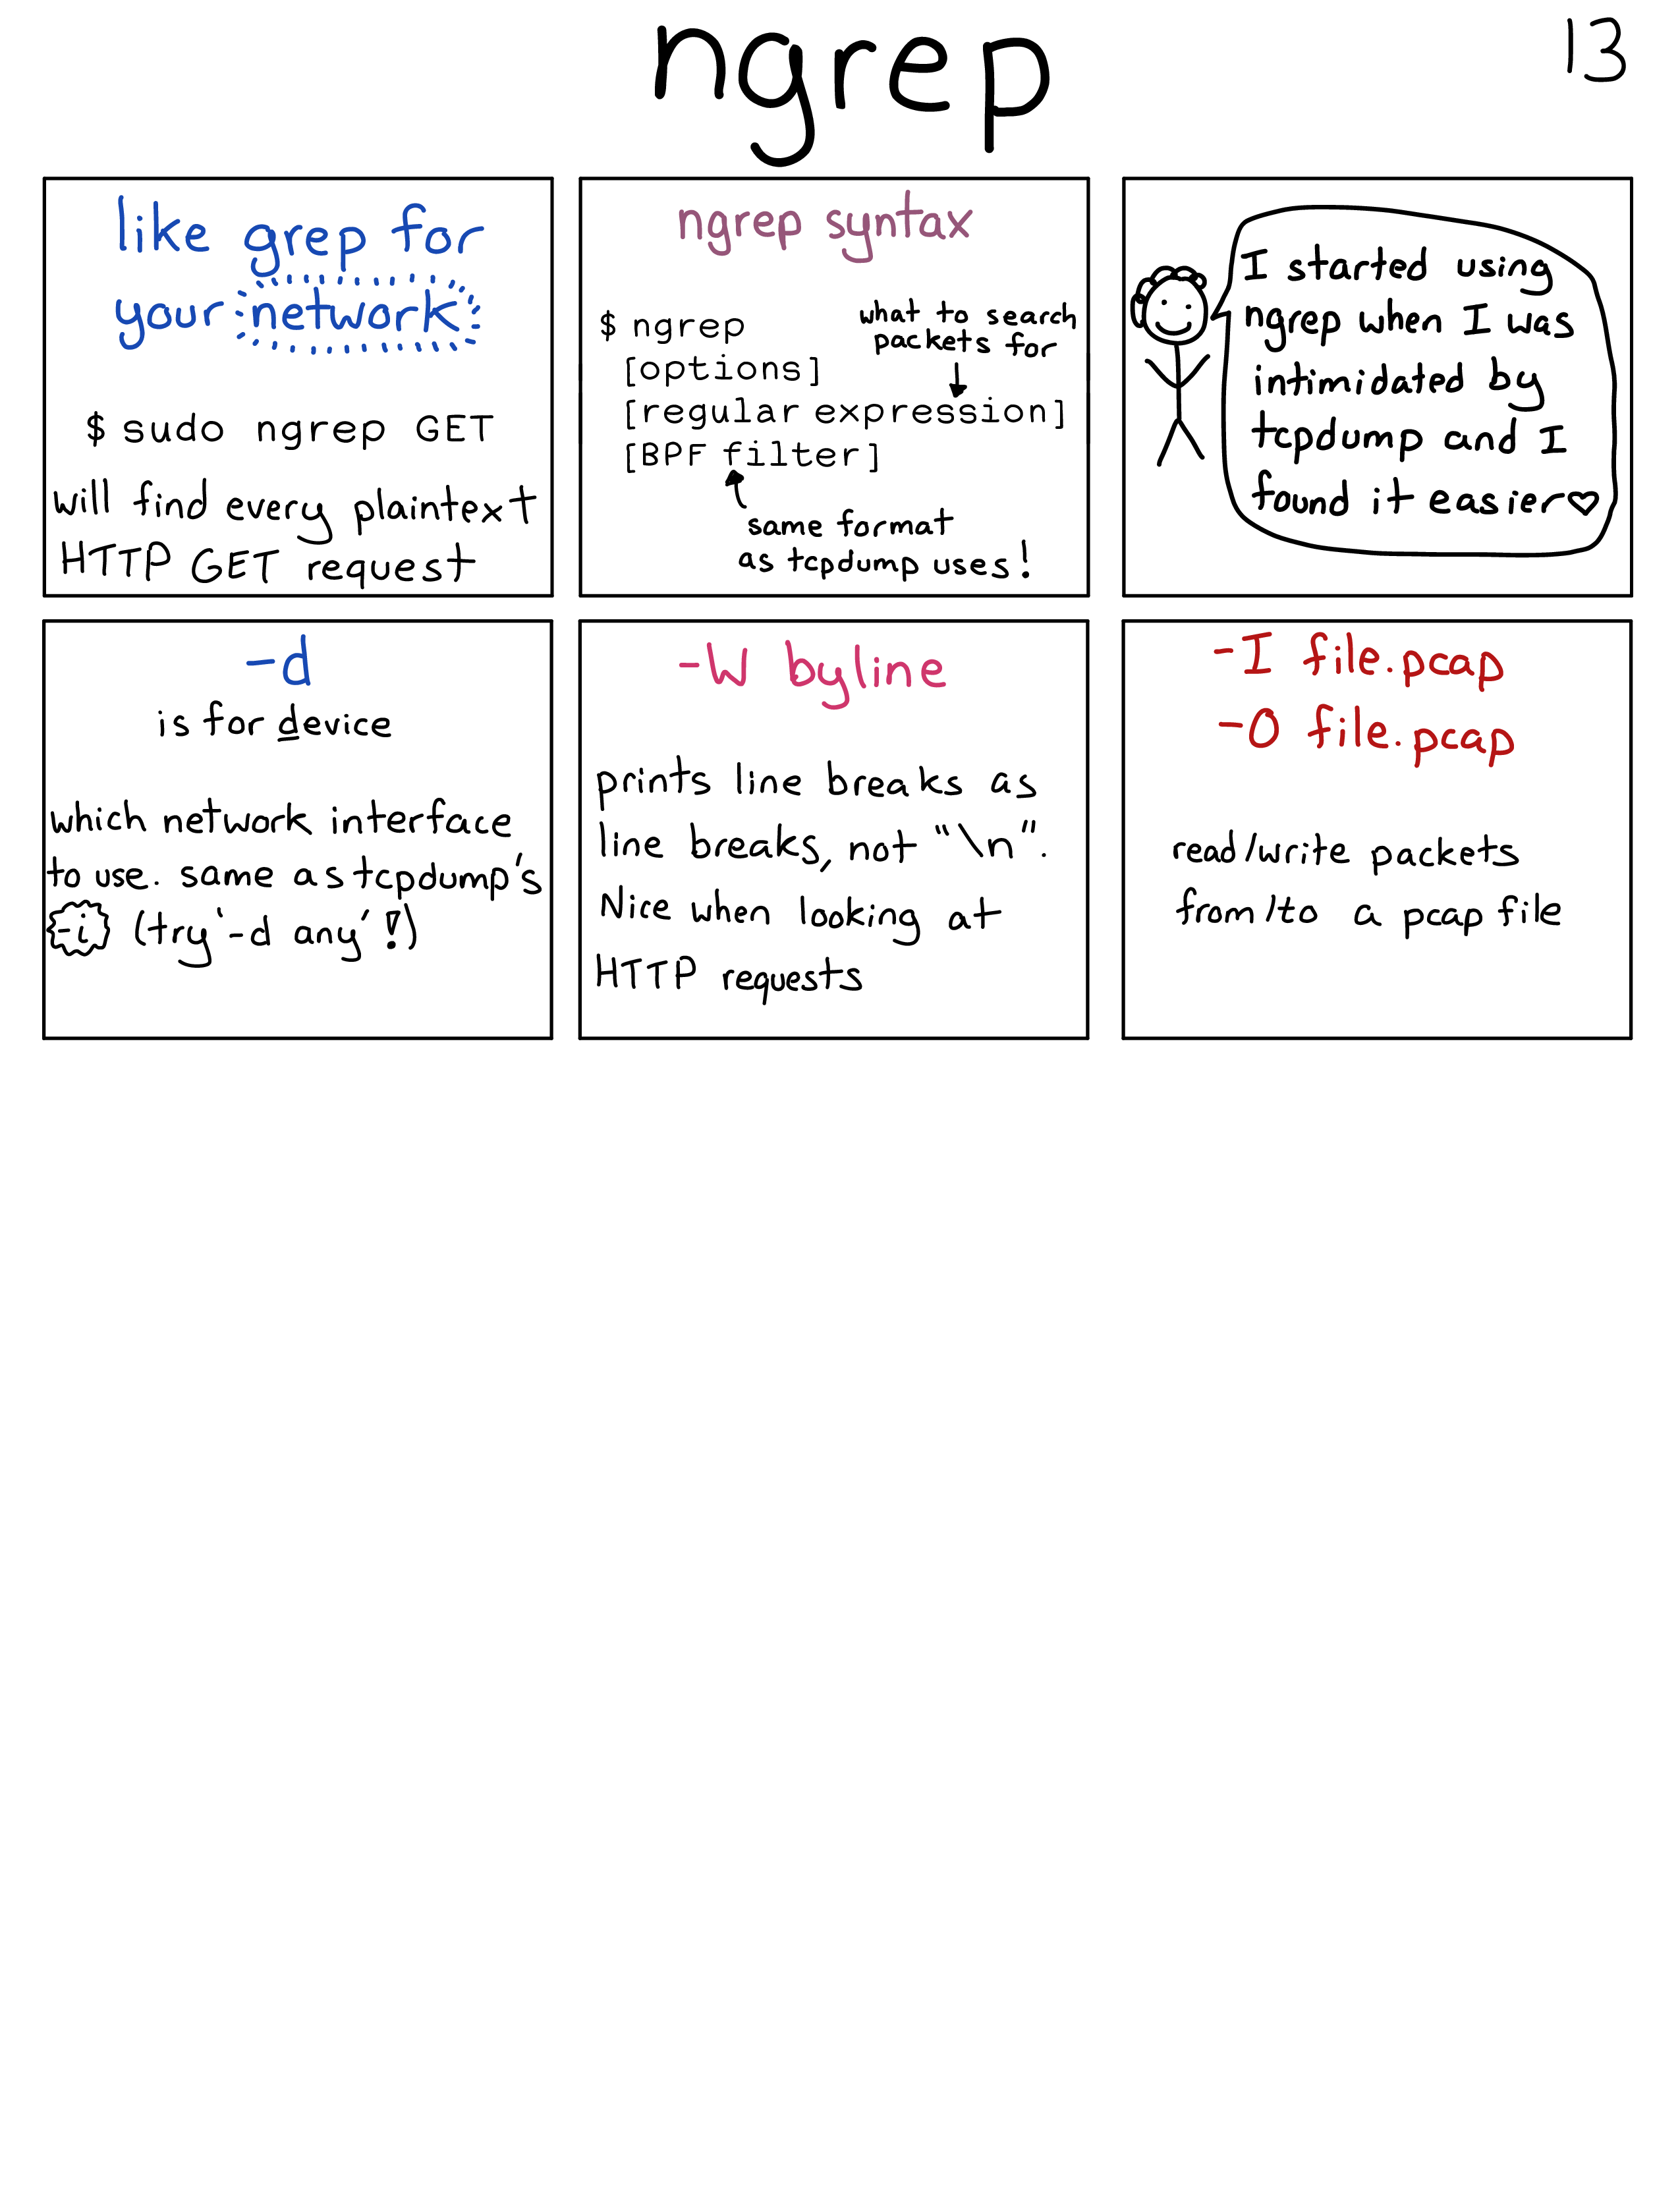 ngrep
13
like grep for
your network
$ sudo ngrep GET
will find every plaintext
HTTP GET request
ngrep syntax
$ ngrep
[options]
what to search
packets for
[regular expression]
[BPF filter]
same format
as tcpdump uses!
I started using
ngrep when I was
intimidated by
tcpdump and I
found it easier♡
-d
is for device
which network interface
to use. same as tcpdump's
-i (try '-d any'!)
-W byline
prints line breaks as
line breaks, not "\n".
Nice when looking at
HTTP requests
-I file.pcap
-O file.pcap
read/write packets
from/to a pcap file